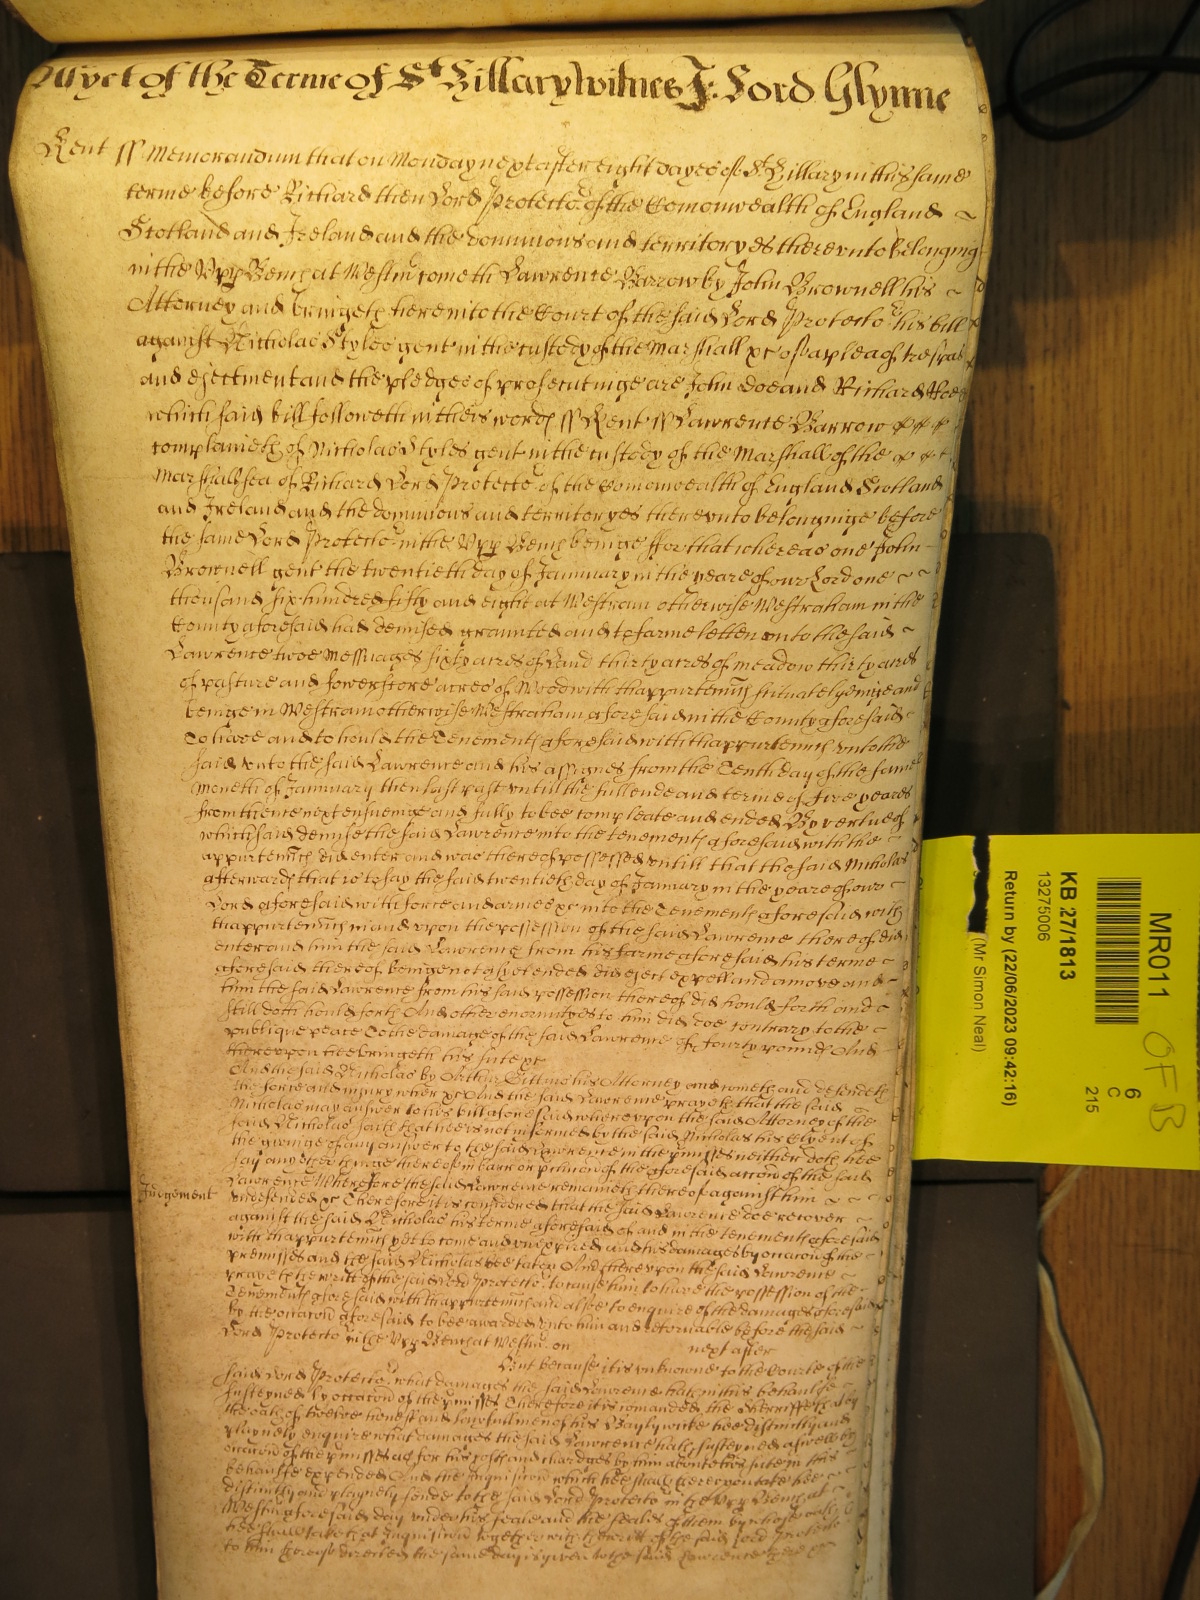 As yet of the Terme of St Hillary Witnes J: Lord Glynne
Kent ss Memorandum that on Monday next after eight dayes of St Hillary in this same
terme before Richard then Lord Protector of the Comonwealth of England
Scotland and Ireland and the dominions and territoryes thereunto belonging
in the Upp Bench at Westm cometh Lawrence Barrow by John Brownell his
Attorney and bringeth here into the Court of the said Lord Protector his bill
against Nicholas Styles gent in the custody of the Marshall &c of a plea of trespas
and ejectment and the pledges of prosecutinge are John Doe and Richard Roe
which said bill followeth in theis words ss Kent ss Lawrence Barrow
complaineth of Nicholas Styles gent in the custody of the Marshall of the
Marshallsea of Richard Lord Protector of the Comonwealth of England Scotland
and Ireland and the dominions and territoryes thereunto belonginge before
the same Lord Protector in the Upp Bench beinge ffor that whereas one John
Brownell gent the twentieth day of January in the yeare of our Lord one
thousand six hundred fifty and eight at Westram otherwise Westraham in the
County aforesaid had demised graunted and to farme letten unto the said
Lawrence twoe Messuages sixty acres of Land thirty acres of meadow thirty acres
of pasture and fowerscore acres of Wood with thappurtennces scituate lyeinge and
beinge in Westram otherwise Westraham aforesaid in the County aforesaid
To have and to hould the Tenements aforesaid with thappurtennces unto the
said unto the said Lawrence and his assignes from the Tenth day of the same
Moneth of January then last past untill the full ende and terme of five yeares
from thence next ensueinge and fully to bee compleate and ended By vertue of
which said demise the said Lawrence into the tenements aforesaid with the
appurtennces did enter and was thereof possessed untill that the said Nicholas
afterwards that is to say the said twentieth day of January in the yeare of our
Lord aforesaid with force and armes &c into the Tenements aforesaid with
thappurtennces in and upon the possession of the said Lawrence thereof did
enter and him the said Lawrence from his farme aforesaid his terme
aforesaid thereof beinge not yet ended did eject expell and amove and
him the said Lawrence from his said possession thereof did hould forth and
still doth hould forth And other enormityes to him did doe contrary to the
publique peace To the damage of the said Lawrence of fourty pounds And
thereupon hee bringeth his sute &c
And the said Nicholas by Arthur Gittins his Attorney cometh and defendeth
the force and injury when &c And the said Lawrence prayeth that the said
Nicholas may answer to his bill aforesaid whereupon the said Attorney of the
said Nicholas saith that hee is not informed by the said Nicholas his Clyent of
the giveinge of any answer to the said Lawrence in the pmisses neither doth hee
say any other thinge thereof in barr or pclusion of the aforesaid accon of the said
Lawrence Wherefore the said Lawrence remaineth thereof against him
Judgement
undefended &c Therefore it is considered that the said Lawrence doe recover
against the said Nicholas his terme aforesaid of and in the tenements aforesaid
with thappurtennces yet to come and unexpired and his damages by occacon of the
premisses and the said Nicholas bee taken And thereupon the said Lawrence
prayeth the writt of the said Lord Protector to cause him to have the possession of the
Tenements aforesaid with thappurtennces and alsoe to enquire of the damages aforesaid
by the occacon aforesaid to bee awarded unto him and retornable before the said
Lord Protector in the Upp Bench at Westm on next after
But because it is unknowne to the Courte of the
said Lord Protector what damages the said Lawrence hath in this behaulfe
susteyned by occacon of the pmisses Therefore it is comanded the Sherriffe that by
the oath of twelve honest and lawfull men of his Baylywicke hee distinctly and
playnely enquire what damages the said Lawrence hath susteyned aswell by
occacon of the pmisses as for his costs and chardges by him about his sute in this
behaulfe expended And the Inquisicon which hee shall thereupon take hee
distinctly and playnely sende to the said Lord Protector in the Upp Bench at
Westm aforesaid day under his seale and the seales of them by whose oath
hee shall take that Inquisicon together with the writt of the said Lord Protector
to him thereof directed the same day is given to the said Lawrence there &c
MR011
OF B
6
C
215
KB 27/1813
13275006
Return by (22/06/2023 09:42:16)
(Mr Simon Neal)